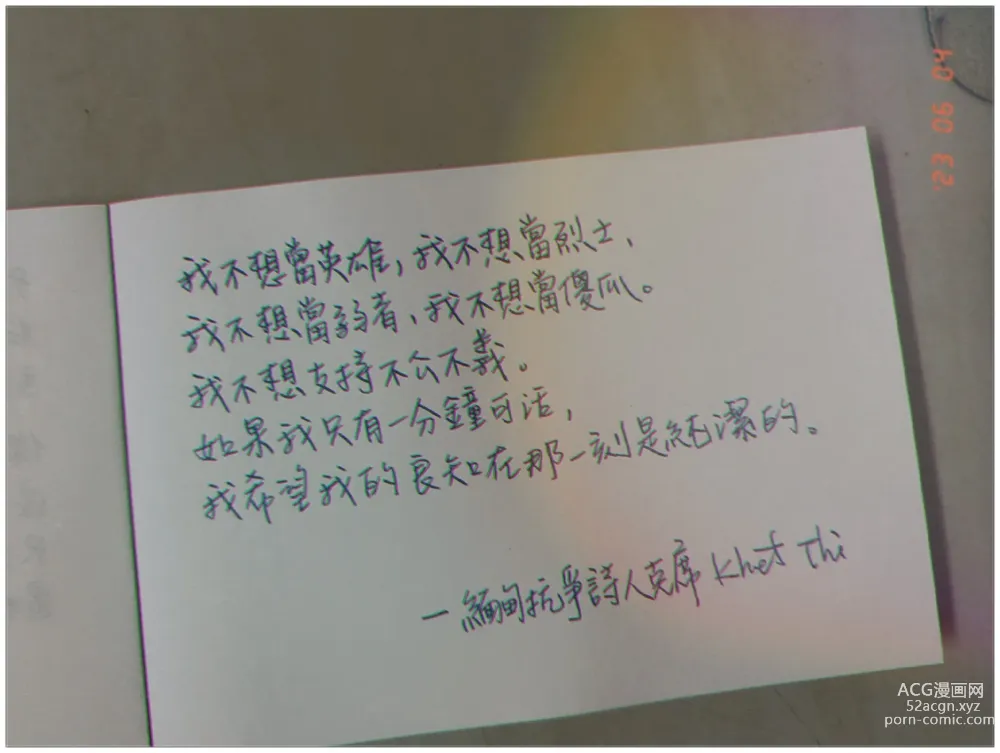 我不想當英雄，我不想當烈士、
我不想當弱者，我不想當傻瓜。
我不想支持不公不義。
如果我只有一分鐘可活，
我希望我的良知在那一刻是純潔的。
—緬甸抗爭詩人克席 Khet Thi
'23 06 04
ACG漫画网
52acgn.xyz
porn-comic.com